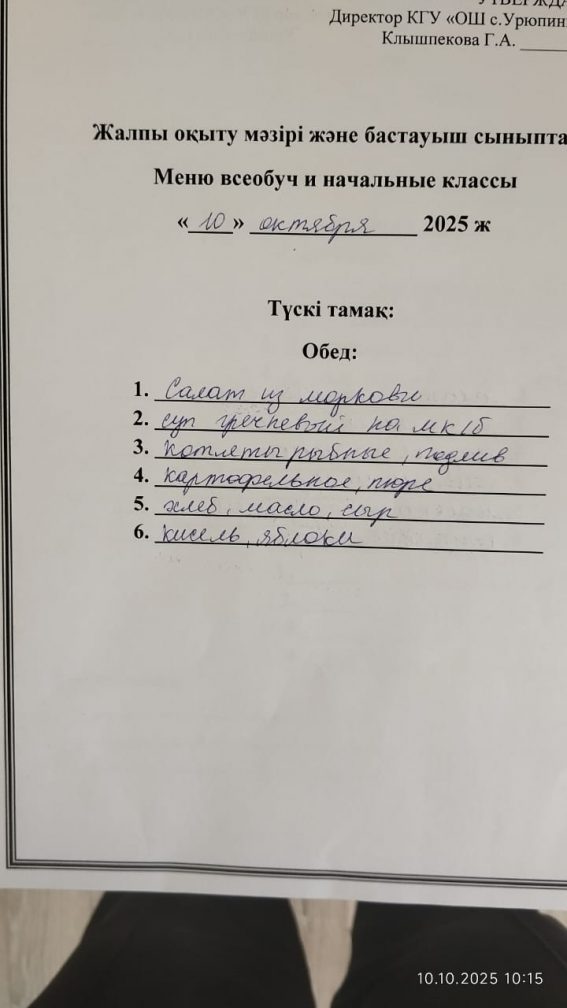 УТВЕРЖДА
Директор КГУ «ОШ с.Урюпин
Клышпекова Г.А. ____
Жалпы оқыту мәзірі және бастауыш сыныпта
Меню всеобуч и начальные классы
«10» октября 2025 ж
Түскі тамақ:
Обед:
1. Салат из моркови
2. суп гречневый на мк/б
3. котлеты рыбные, подлив
4. картофельное, пюре
5. хлеб, масло, сыр
6. кисель, яблоки
10.10.2025 10:15